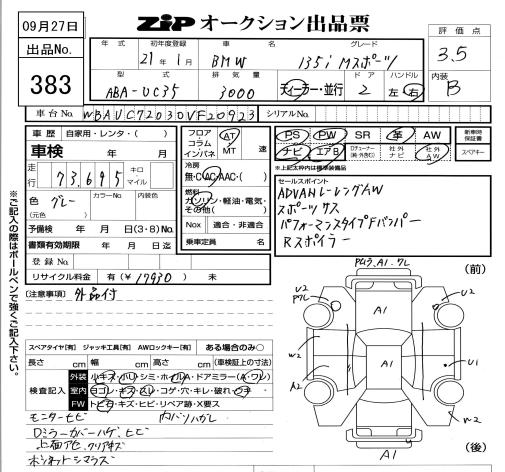 09月27日
出品No.
383
ZIP オークション出品票
評価点
3.5
内装
B
年式 初年度登録 車名 グレード
21年 1月 BMW 135i Mスポーツ
型式 排気量 ドア ハンドル
ABA-UC35 3000 ディーラー・並行 2 左・右
車台No. WBAUC72030VF20923 シリアルNo.
車歴 自家用・レンタ・( )
車検 年 月
走行 73,695 キロ マイル
色 グレー カラーNo. 内装色
(元色)
予備検 年 月 日(3・8)No.
書類有効期限 年 月 日迄
登録No.
リサイクル料金 有(¥17930) 未
フロア コラム インパネ AT MT 速
冷房
無・C(AC/AAC・( )
燃料
ガソリン・軽油・電気・その他( )
Nox 適合・非適合
乗車定員 名
PS PW SR 革 AW
ナビ エアB 社外ナビ 社外AW
新車時保証書
スペアキー
※上記太枠内は標準装備品
セールスポイント
ADVANレーシングAW
スポーツサス
パフォーマンスタイプFバンパー
Rスポイラー
[注意事項] 外品付
※ご記入の際はボールペンで強くご記入下さい。
スペアタイヤ[有] ジャッキ工具[有] AWロックキー[有] ある場合のみ○
長さ cm 幅 cm 高さ cm (車検証上の寸法)
検査記入
外装 小キズ・小凹・シミ・ホイルA・ドアミラー(A・ワレ)
室内 ヨゴレ・キズ・スレ・コゲ・穴・キレ・破れ・ウキ
FW トビ石・キズ・ヒビ・リペア跡・X要ス
モニターヒビ 内バリハガレ
Dミラーカバーハゲ、ヒビ
上面アセ、クリアキズ
ボンネットシマラズ
(前)
A1
U2
U2
A1
W2
U1
A2
W2
A1
A1
(後)